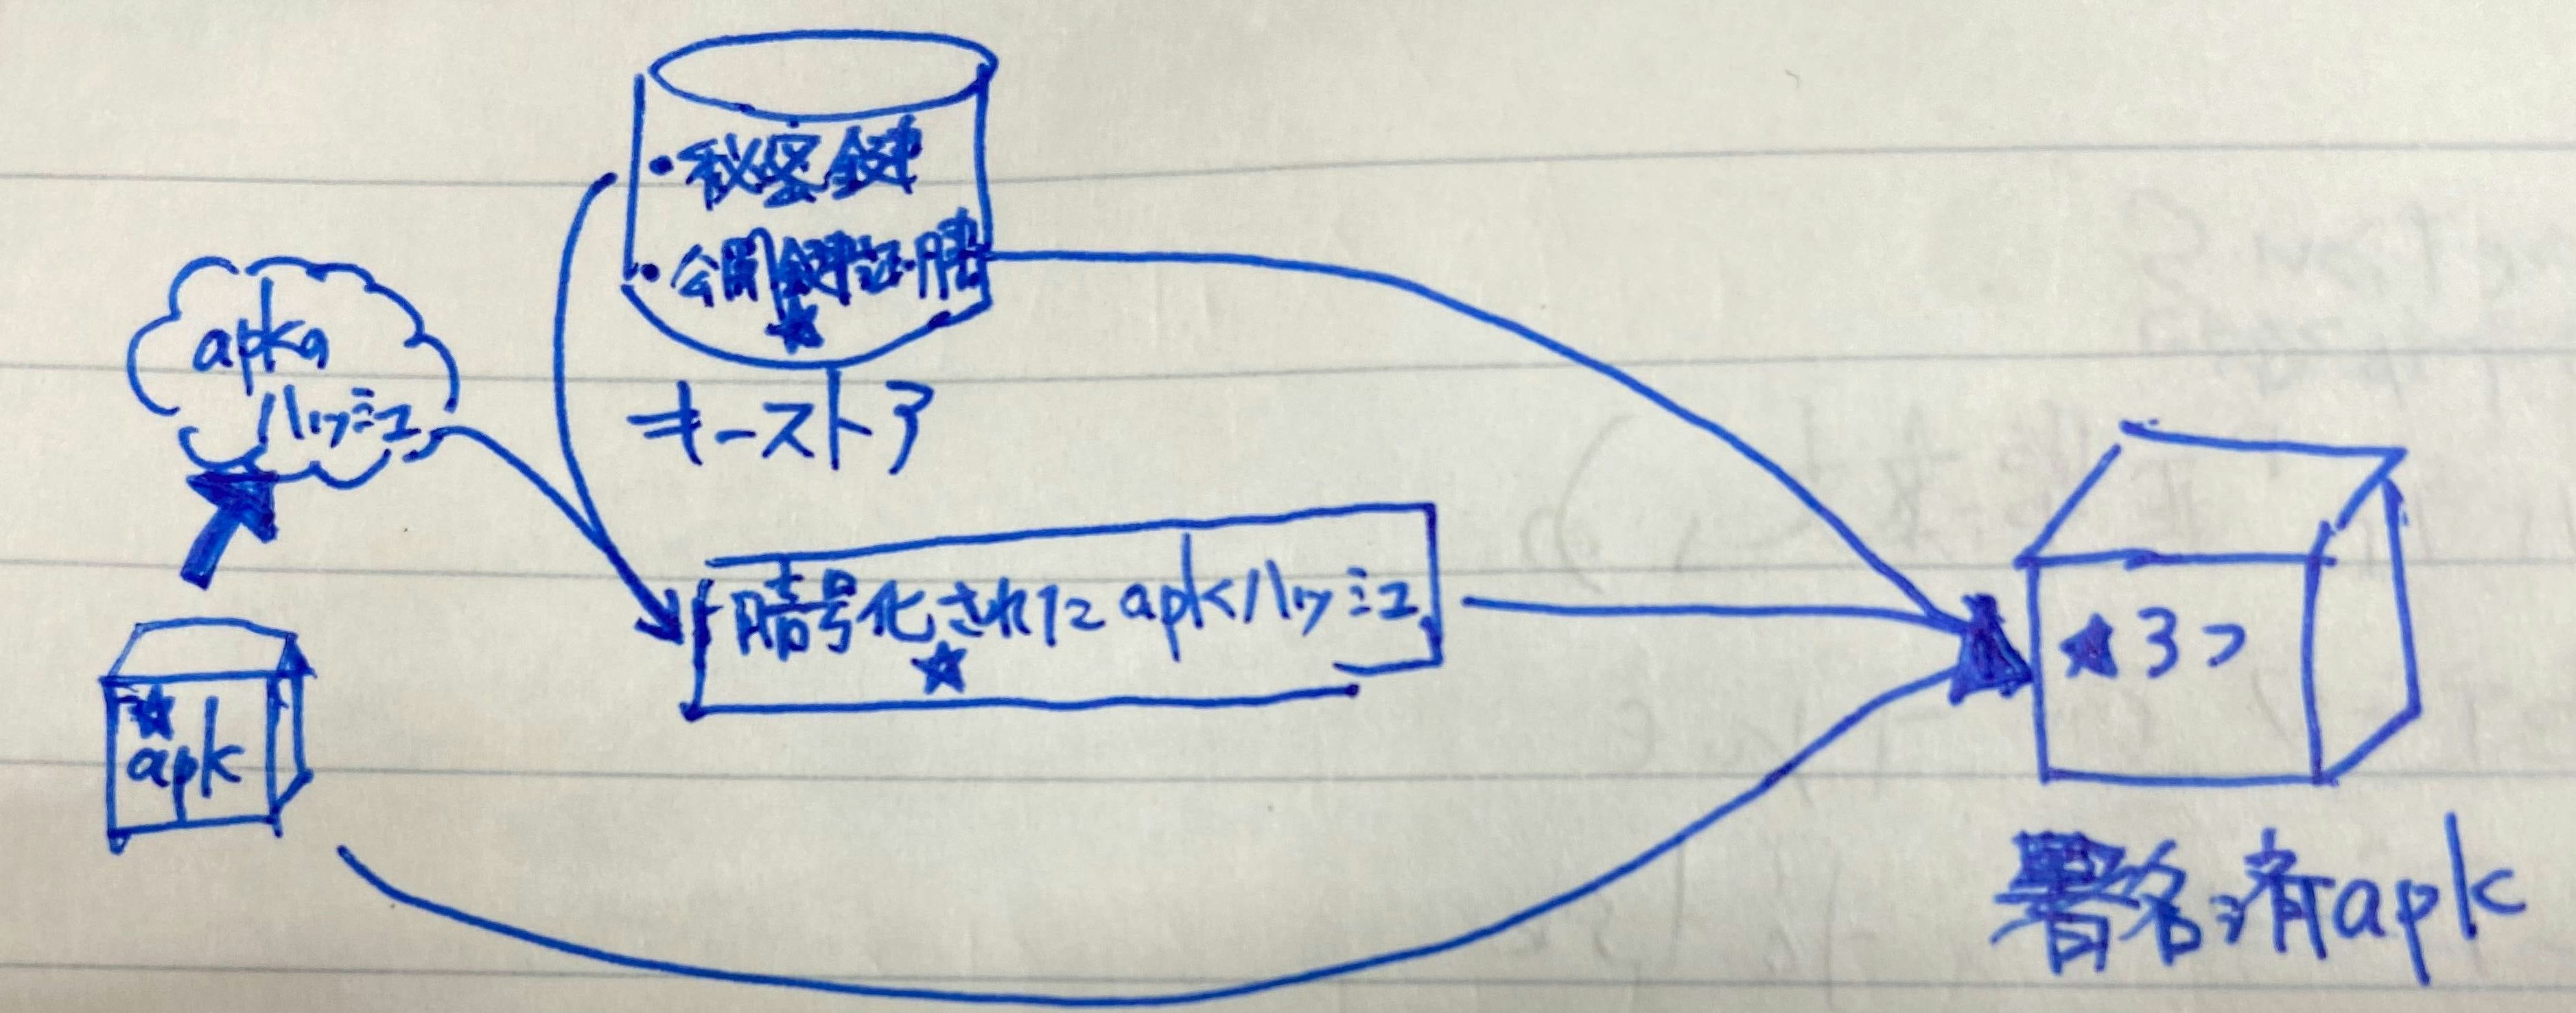 ・秘密鍵
・公開鍵証明書
★
キーストア
apkの
ハッシュ
暗号化されたapkハッシュ
★
★
apk
★3つ
署名済apk